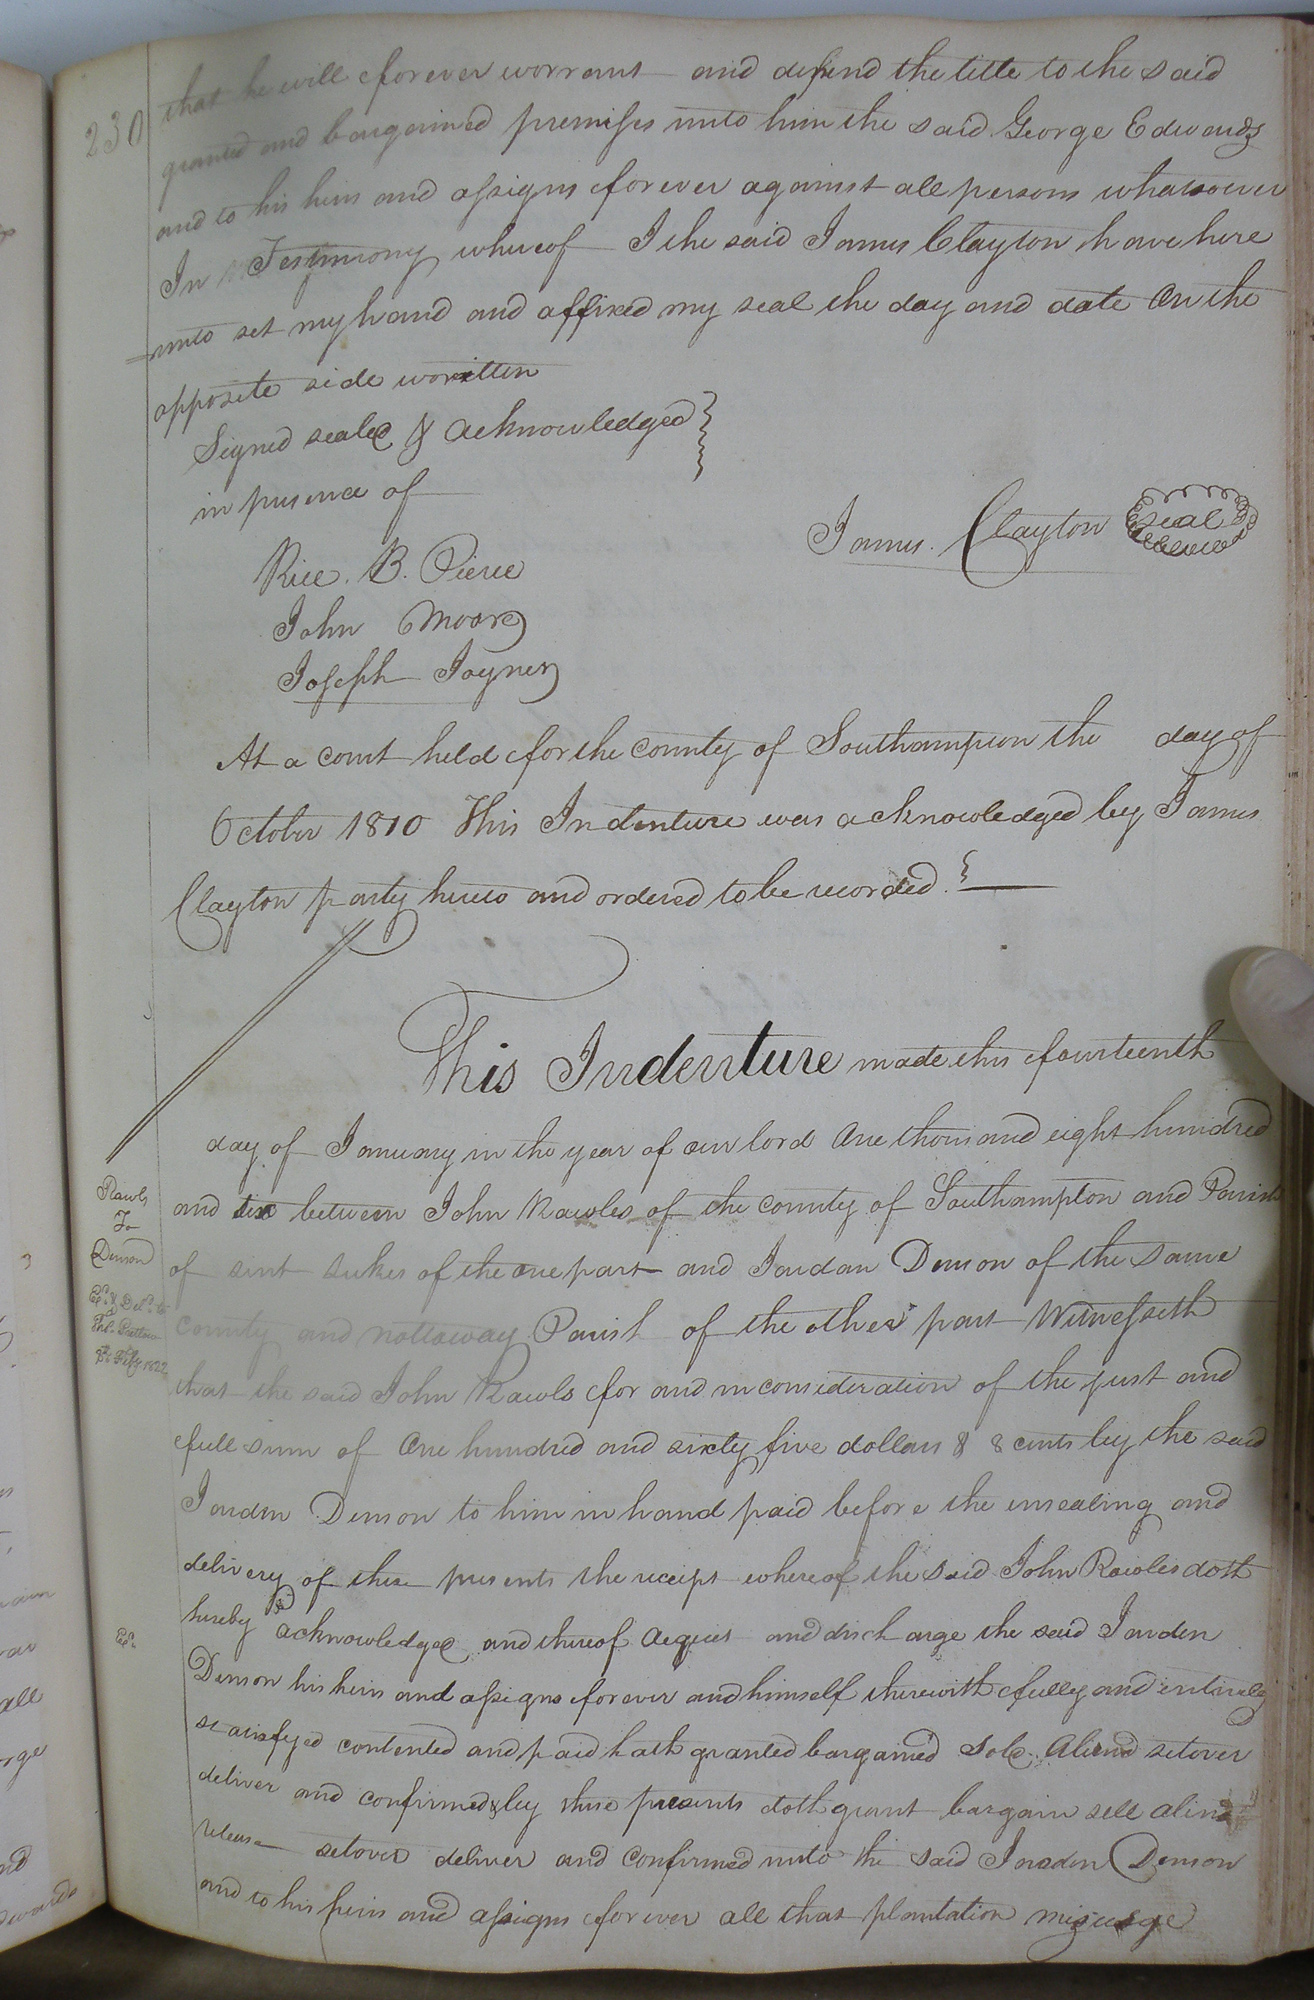 230
that he will forever worrant and defend the title to the said
granted and bargained premises unto him the said George Edwards
and to his heirs and assigns forever against all persons whatsoever
In Testimony whereof I the said James Clayton have here
unto set my hand and affixed my seal the day and date on the
opposite side worritten
Signed sealed & acknowledged
in presence of
James Clayton seal
Rice. B. Pierce
John Moore
Joseph Joyner
At a court held for the county of Southampton the day of
October 1810 This Indenture was acknowledged by James
Clayton party hereto and ordered to be recorded.
This Indenture made this fourteenth
day of January in the year of our lord One thousand eight hundred
and six between John Rawles of the county of Southampton and Parish
of sint Lukes of the one part and Jordan Denson of the same
county and nottoway Parish of the other part Witnesseth
that the said John Rawls for and in consideration of the just and
full sum of One hundred and sixty five dollars & 8 cents by the said
Jorden Denson to him in hand paid before the insealing and
delivery of these presents the receipt whereof the said John Rawles doth
hereby acknowledge and thereof acquit and discharge the said Jorden
Denson his heirs and assigns forever and himself therewith fully and entirely
satisfyed contented and paid hath granted bargained sold Aliend setover
deliver and confirmed & by these presents doth grant bargain sell alind
release setover deliver and confirmed unto the said Jorden Denson
and to his heirs and assigns forever all that plantation
Rawls
To
Denson
Ex.d & Del.d to
Feby 1822
Ex.